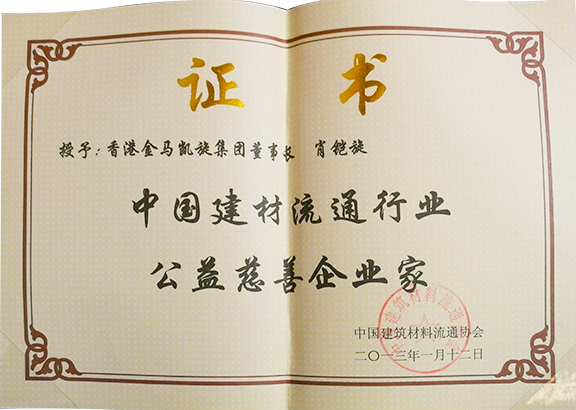 证书
授予：香港金马凯旋集团董事长 肖铠旋
中国建材流通行业
公益慈善企业家
中国建筑材料流通协会
二〇一三年一月十二日